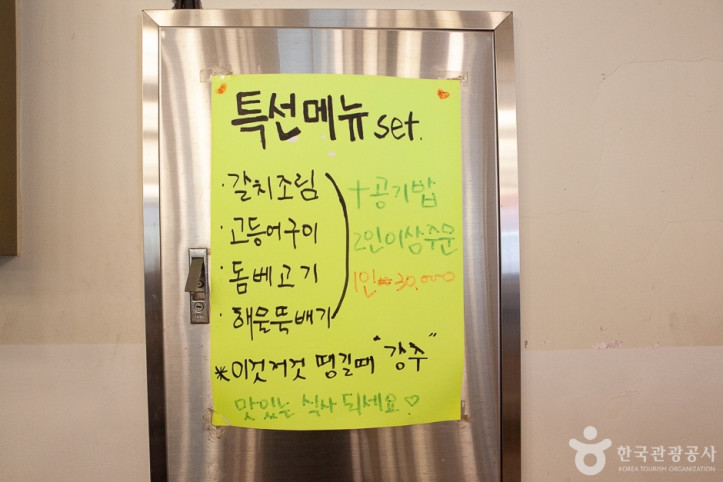 특선메뉴 set.
· 갈치조림
· 고등어구이
· 돔베고기
· 해물뚝배기
+공기밥
2인이상주문
1인=30,000
※이것저것 땡길때 "강추"
맛있는 식사 되세요♡
한국관광공사
KOREA TOURISM ORGANIZATION